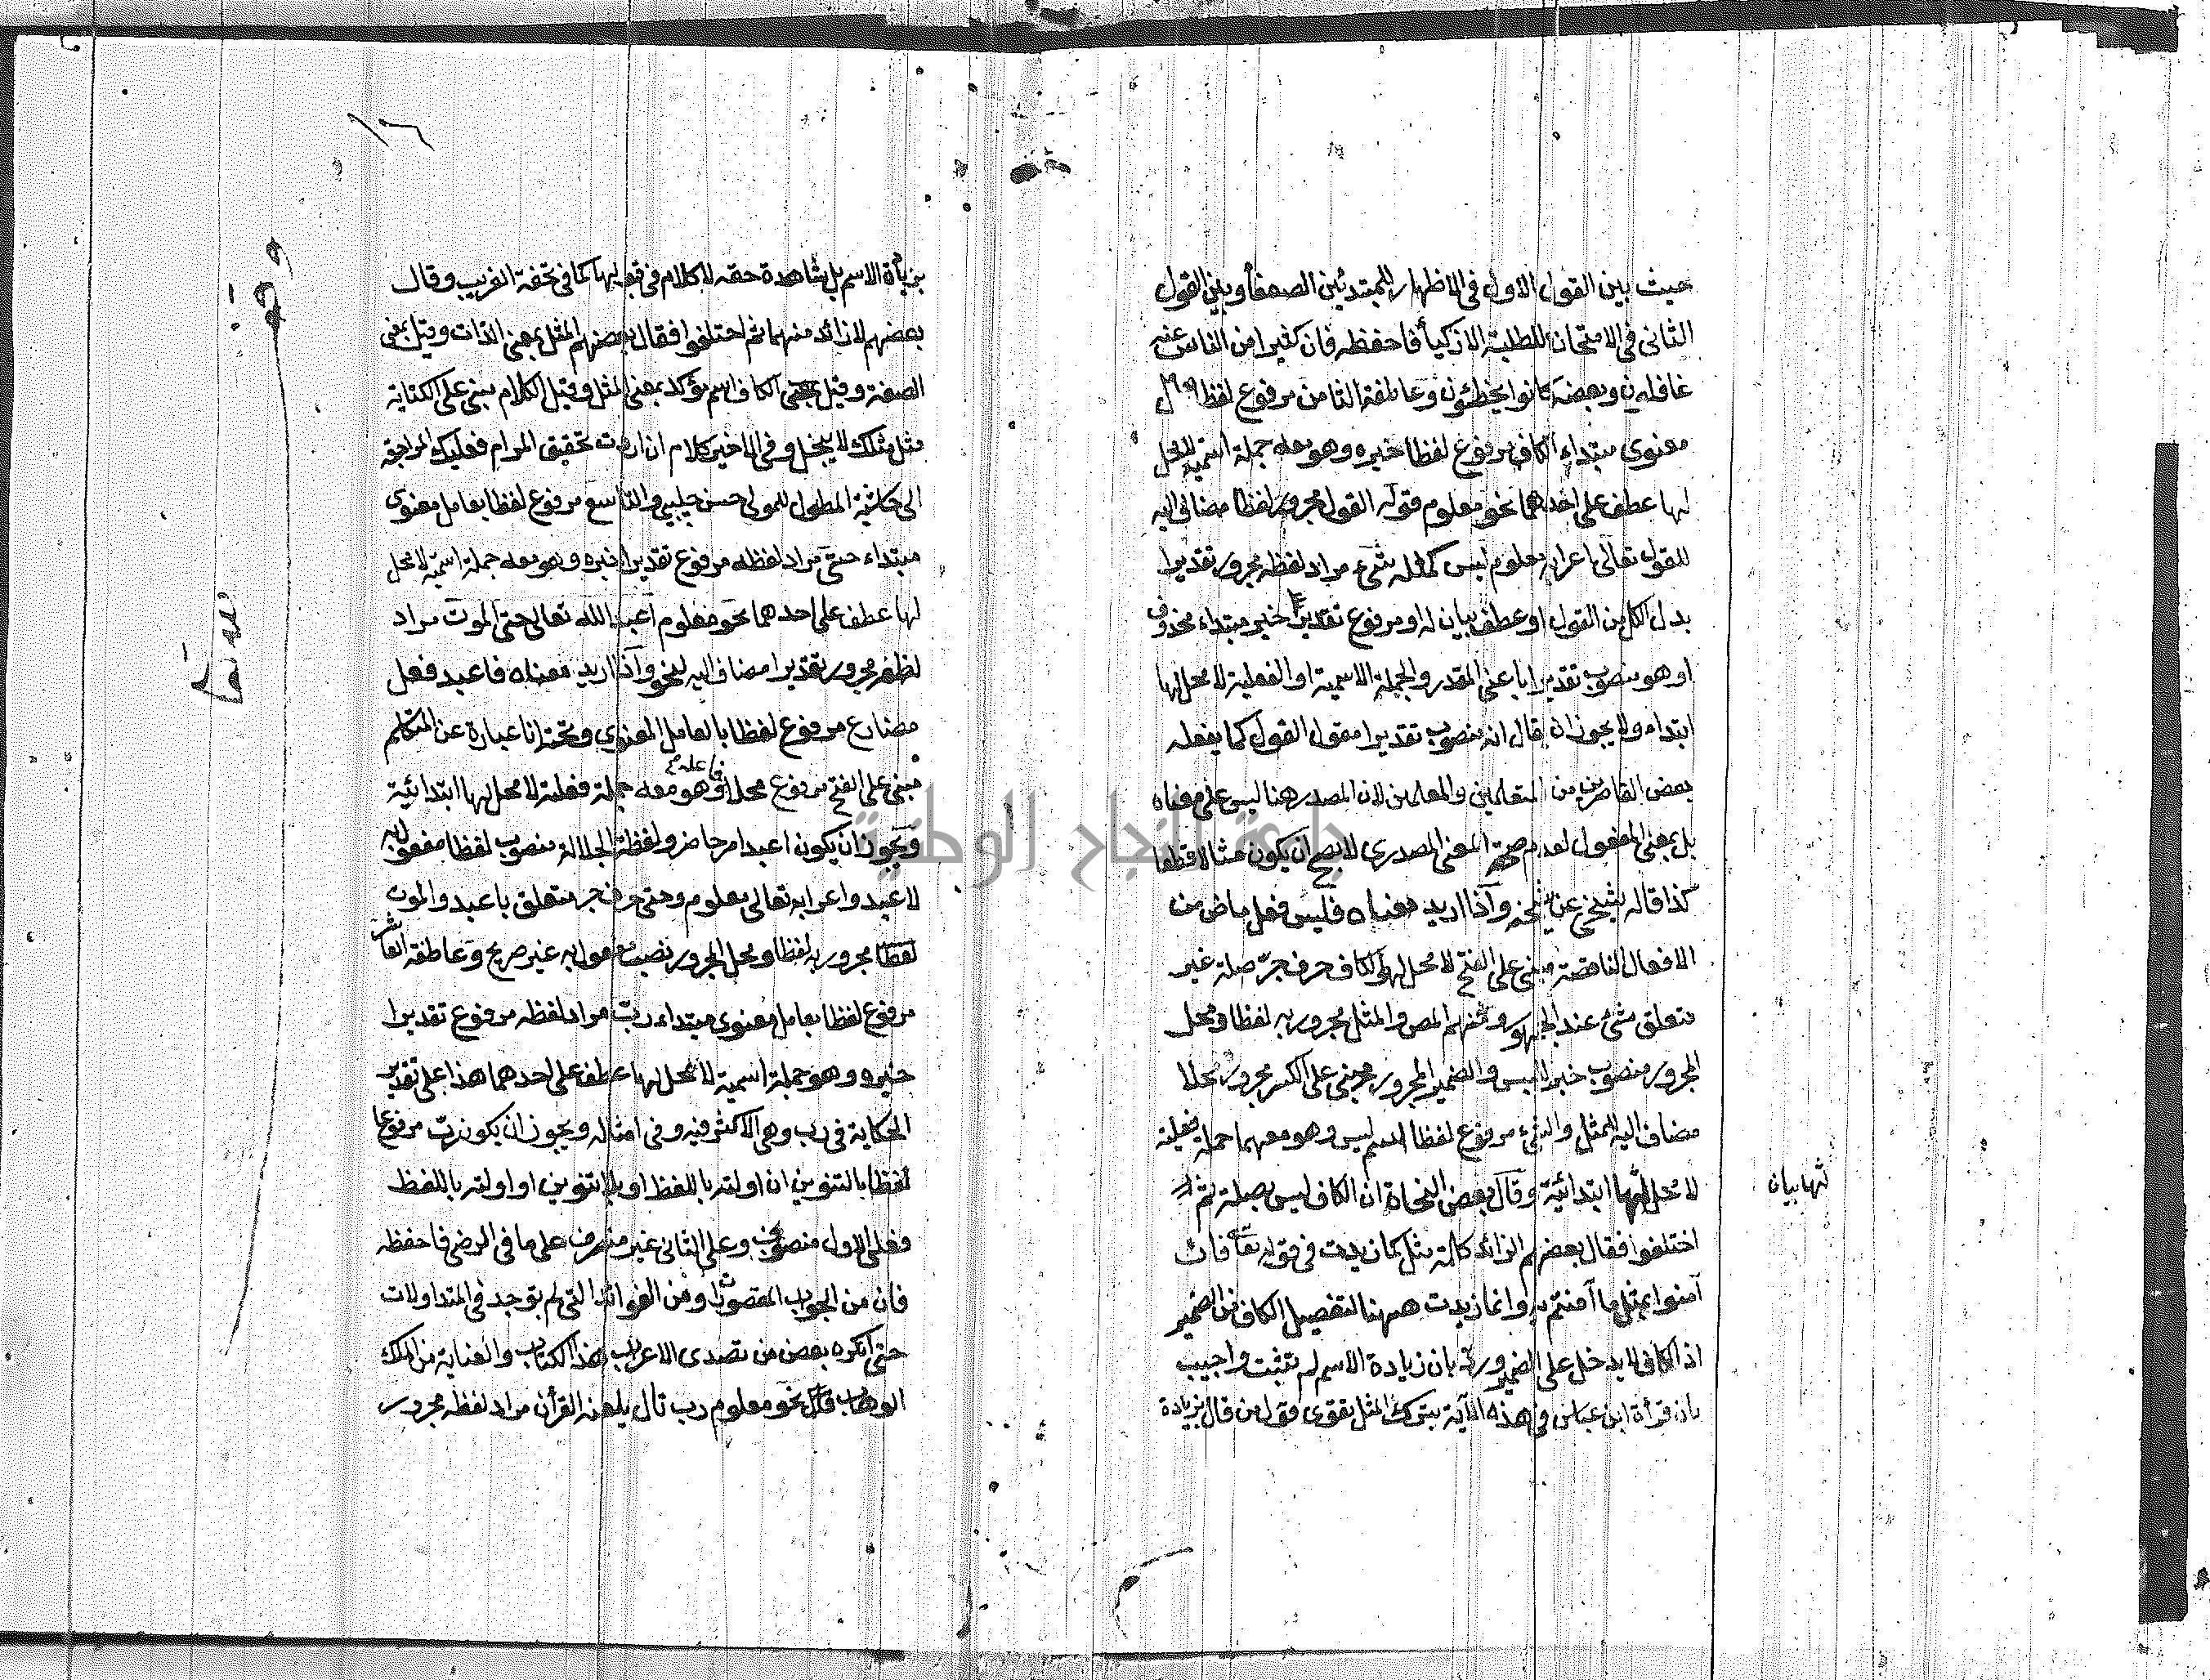 حيث بين القول الاول فى الاظهار للمبتدئين الضعفأ وبين القول
الثانى فى الامتحان للطلبة الازكيأ فاحفظه فان كثيرا من الناس عنه
غافلون وبعضه كانوا يخطئون وعاطفة الثامن مرفوع لفظا
معنوى مبتداء الكاف مرفوع لفظا خبره وهو معه جملة اسمية لامحل
لها عطف على احدهما نحو معلوم قوله القول مجرور لفظا مضاف اليه
للقول تعالى اعرابه معلوم ليس كمثله شئ مراد لفظه مجرور تقديرا
بدل الكل من القول او عطف بيان له او مرفوع تقديرا خبر مبتداء محذوف
او هو منصوب تقديرا باعنى المقدر والجملة الاسمية او الفعلية لا محل لها
ابتداء ولا يجوز ان يقال انه منصوب تقديرا مقول القول كما يفعله
بعض القاصرين من المتعلمين والمعلمين لان المصدر هنا ليس على معناه
بل بمعنى المفعول لعدم صحة المعنى المصدرى لا يصح ان يكون مثالا قطعا
كذا قاله شيخى عن شيخه وآذا اريد معناه فليس فعل ماض من
الافعال الناقصة مبنى على الفتح لا محل له والكاف حرف جر صلة غير
متعلق بشئ عند الجمهور ومنهم المص والمثل مجرور به لفظا ومحل
المجرور منصوب خبر ليس والضمير المجرور مبنى على الكسر مجرور محلا
مضاف اليه للمثل والشئ مرفوع لفظا اسم ليس وهو معهما جملة فعلية
لا محل لها ابتدائية وقال بعض النحاة ان الكاف ليس بصلة ثم
لها بيان
اختلفوا فقال بعضهم الزائد كلمة مثل كما زيدت فى قوله تعا فان
آمنوا بمثل ما آمنتم به وانما زيدت ههنا لتفصيل الكاف من الضمير
اذ الكاف لا يدخل على الضمير ورد بان زيادة الاسم لم تثبت واجيب
بان قرأة ابن عباس فى هذه الآية بترك المثل يقوى قول من قال بزيادة
١٦
بزيأة الاسم بل بشاهدة حقه لا كلام فى قبولها كما فى تحفة الغريب وقال
بعضهم لا زائد منهما ثم اختلفوا فقال بعضهم المثل بمعنى الذات وقيل بمعنى
الصفة وقيل بمعنى الكاف اسم مؤكد بمعنى المثل وقيل الكلام مبنى على الكناية
مثل مثلك لا يبخل وفى الاخير كلام ان اردت تحقيق المرام فعليك المراجعة
الى حاشية المطول للمولى حسن چلبى والتاسع مرفوع لفظا بعامل معنوى
مبتداء حتى مراد لفظه مرفوع تقديرا خبره وهو معه جملة اسمية لا محل
لها عطف على احدهما نحو معلوم اعبد الله تعالى حتى الموت مراد
لفظه مجرور تقديرا مضاف اليه لنحو وآذا اريد معناه فاعبد فعل
مضارع مرفوع لفظا بالعامل المعنوى وتحته انا عبارة عن المتكلم
مبنى على الفتح مرفوع محلا فاعله وهو معه جملة فعلية لا محل لها ابتدائية
ويجوز ان يكون اعبد امر حاضر ولفظة الجلالة منصوب لفظا مفعول به
لاعبد واعرابه تعالى معلوم وحتى حرف جر متعلق باعبد والموت
لفظا مجرور به لفظا ومحل المجرور نصب مفعول به غير صريح وعاطفة العاشر
مرفوع لفظا بعامل معنوى مبتداء رب مراد لفظه مرفوع تقديرا
خبره وهو جملة اسمية لا محل لها عطف على احدهما هذا على تقدير
الحكاية فى رب وهى الاكثر فيه وفى امثاله ويجوز ان يكون رب مرفوعا
لفظا بالتنوين ان اولته باللفظ او بلا تنوين او اولته باللفظ
فعلى الاول منصوب وعلى الثانى غير منصرف على ما فى الرضى فاحفظه
فان من الجواب المقصورا ومن الفوائد التى لم توجد فى المتداولات
حتى انكره بعض من تصدى الاعراب بهذا الكتاب والعناية من الملك
الوهاب قال نحو معلوم رب تال يلعنه القرأن مراد لفظه مجرور